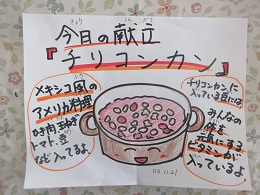 今日の献立
きょう こん だて
『チリコンカン』
メキシコ風の
アメリカ料理
ひき肉、玉ねぎ
トマト、豆
など入ってるよ
チリコンカンに
入っている豆には
みんなの
体を
元気にする
ビタミンが
入っているよ